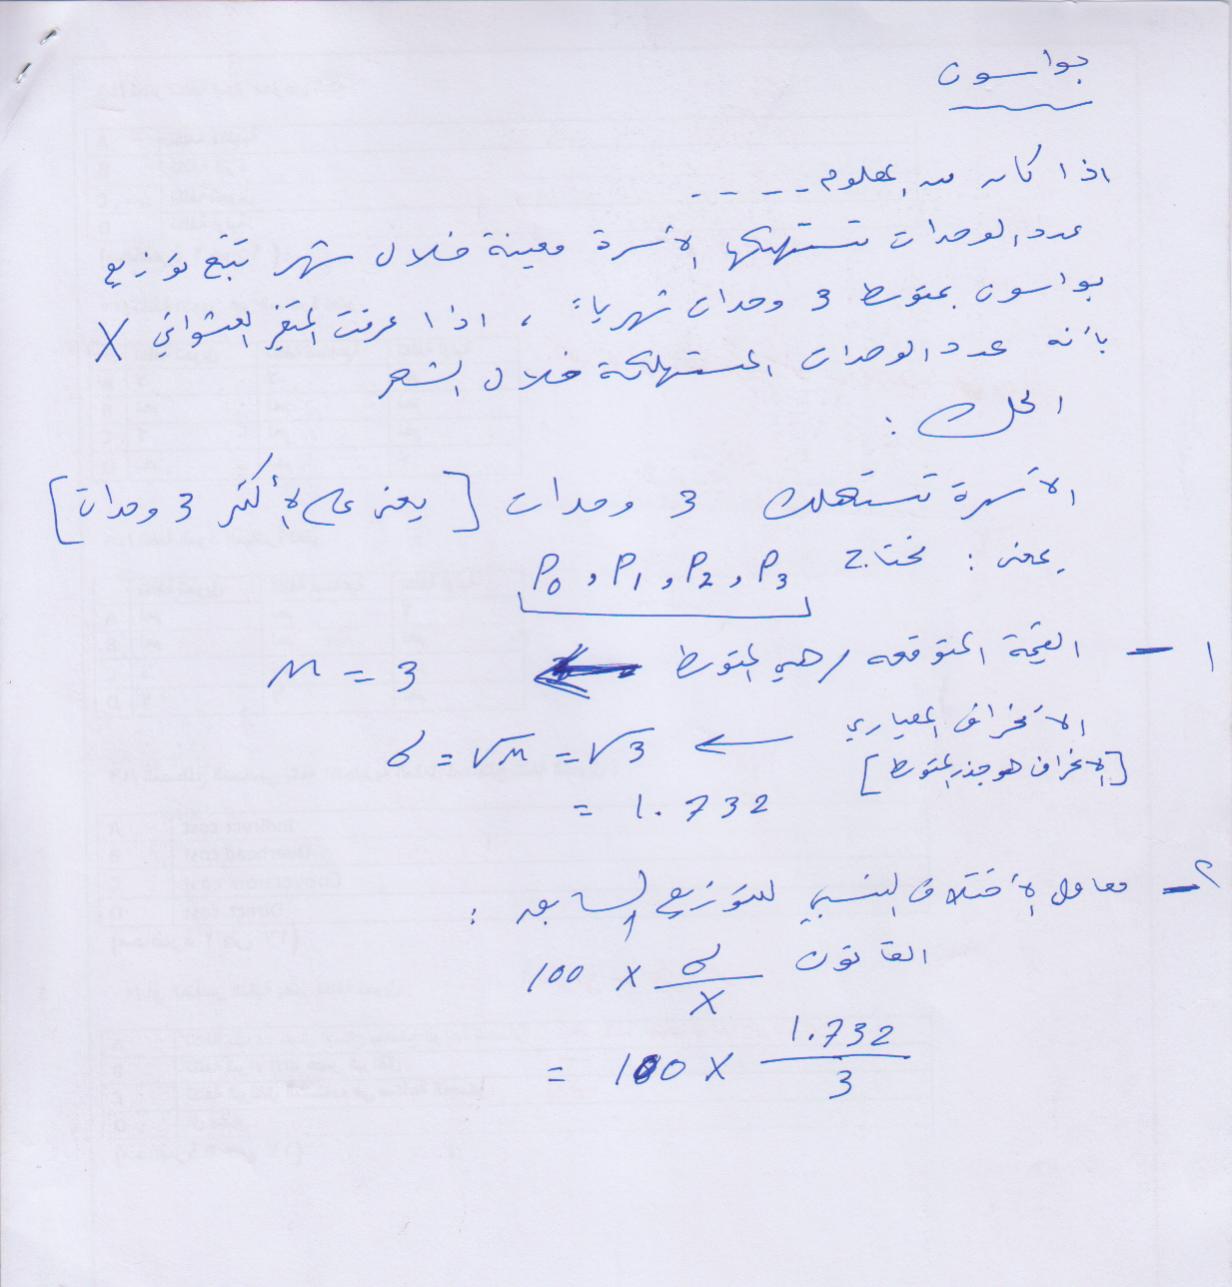 بواسون
اذا كان من المعلوم - - - - -
عدد الوحدات تستهلكها الأسرة معينة خلال شهر تتبع توزيع
بواسون بمتوسط 3 وحدات شهرياً ، اذا عرفت المتغير العشوائي X
بأنه عدد الوحدات المستهلكة خلال الشهر
الحل :
الأسرة تستهلك 3 وحدات [ يعني على الأكثر 3 وحدات ]
يعني : نحتاج P0 , P1 , P2 , P3
١ - القيمة المتوقعه / هي المتوسط ← M = 3
الانحراف المعياري ← σ = √M = √3
[الانحراف هو جذر المتوسط]
= 1.732
٢ - معامل الأختلاف النسبي للتوزيع السابق :
القانون σ/X × 100
= 100 × 1.732/3